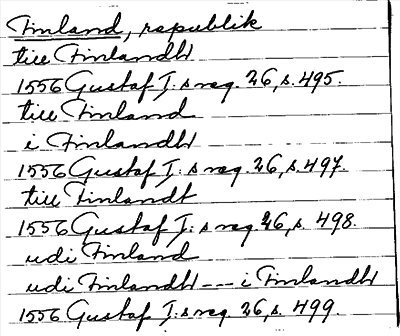 Finland, republik
till Finlandh
1556 Gustaf I:s reg. 26, s. 495.
till Finland
i Finlandh
1556 Gustaf I:s reg. 26, s. 497.
till Finlandt
1556 Gustaf I:s reg. 26, s. 498.
udi Finland
udi Finlandh --- i Finlandh
1556 Gustaf I:s reg. 26, s. 499.